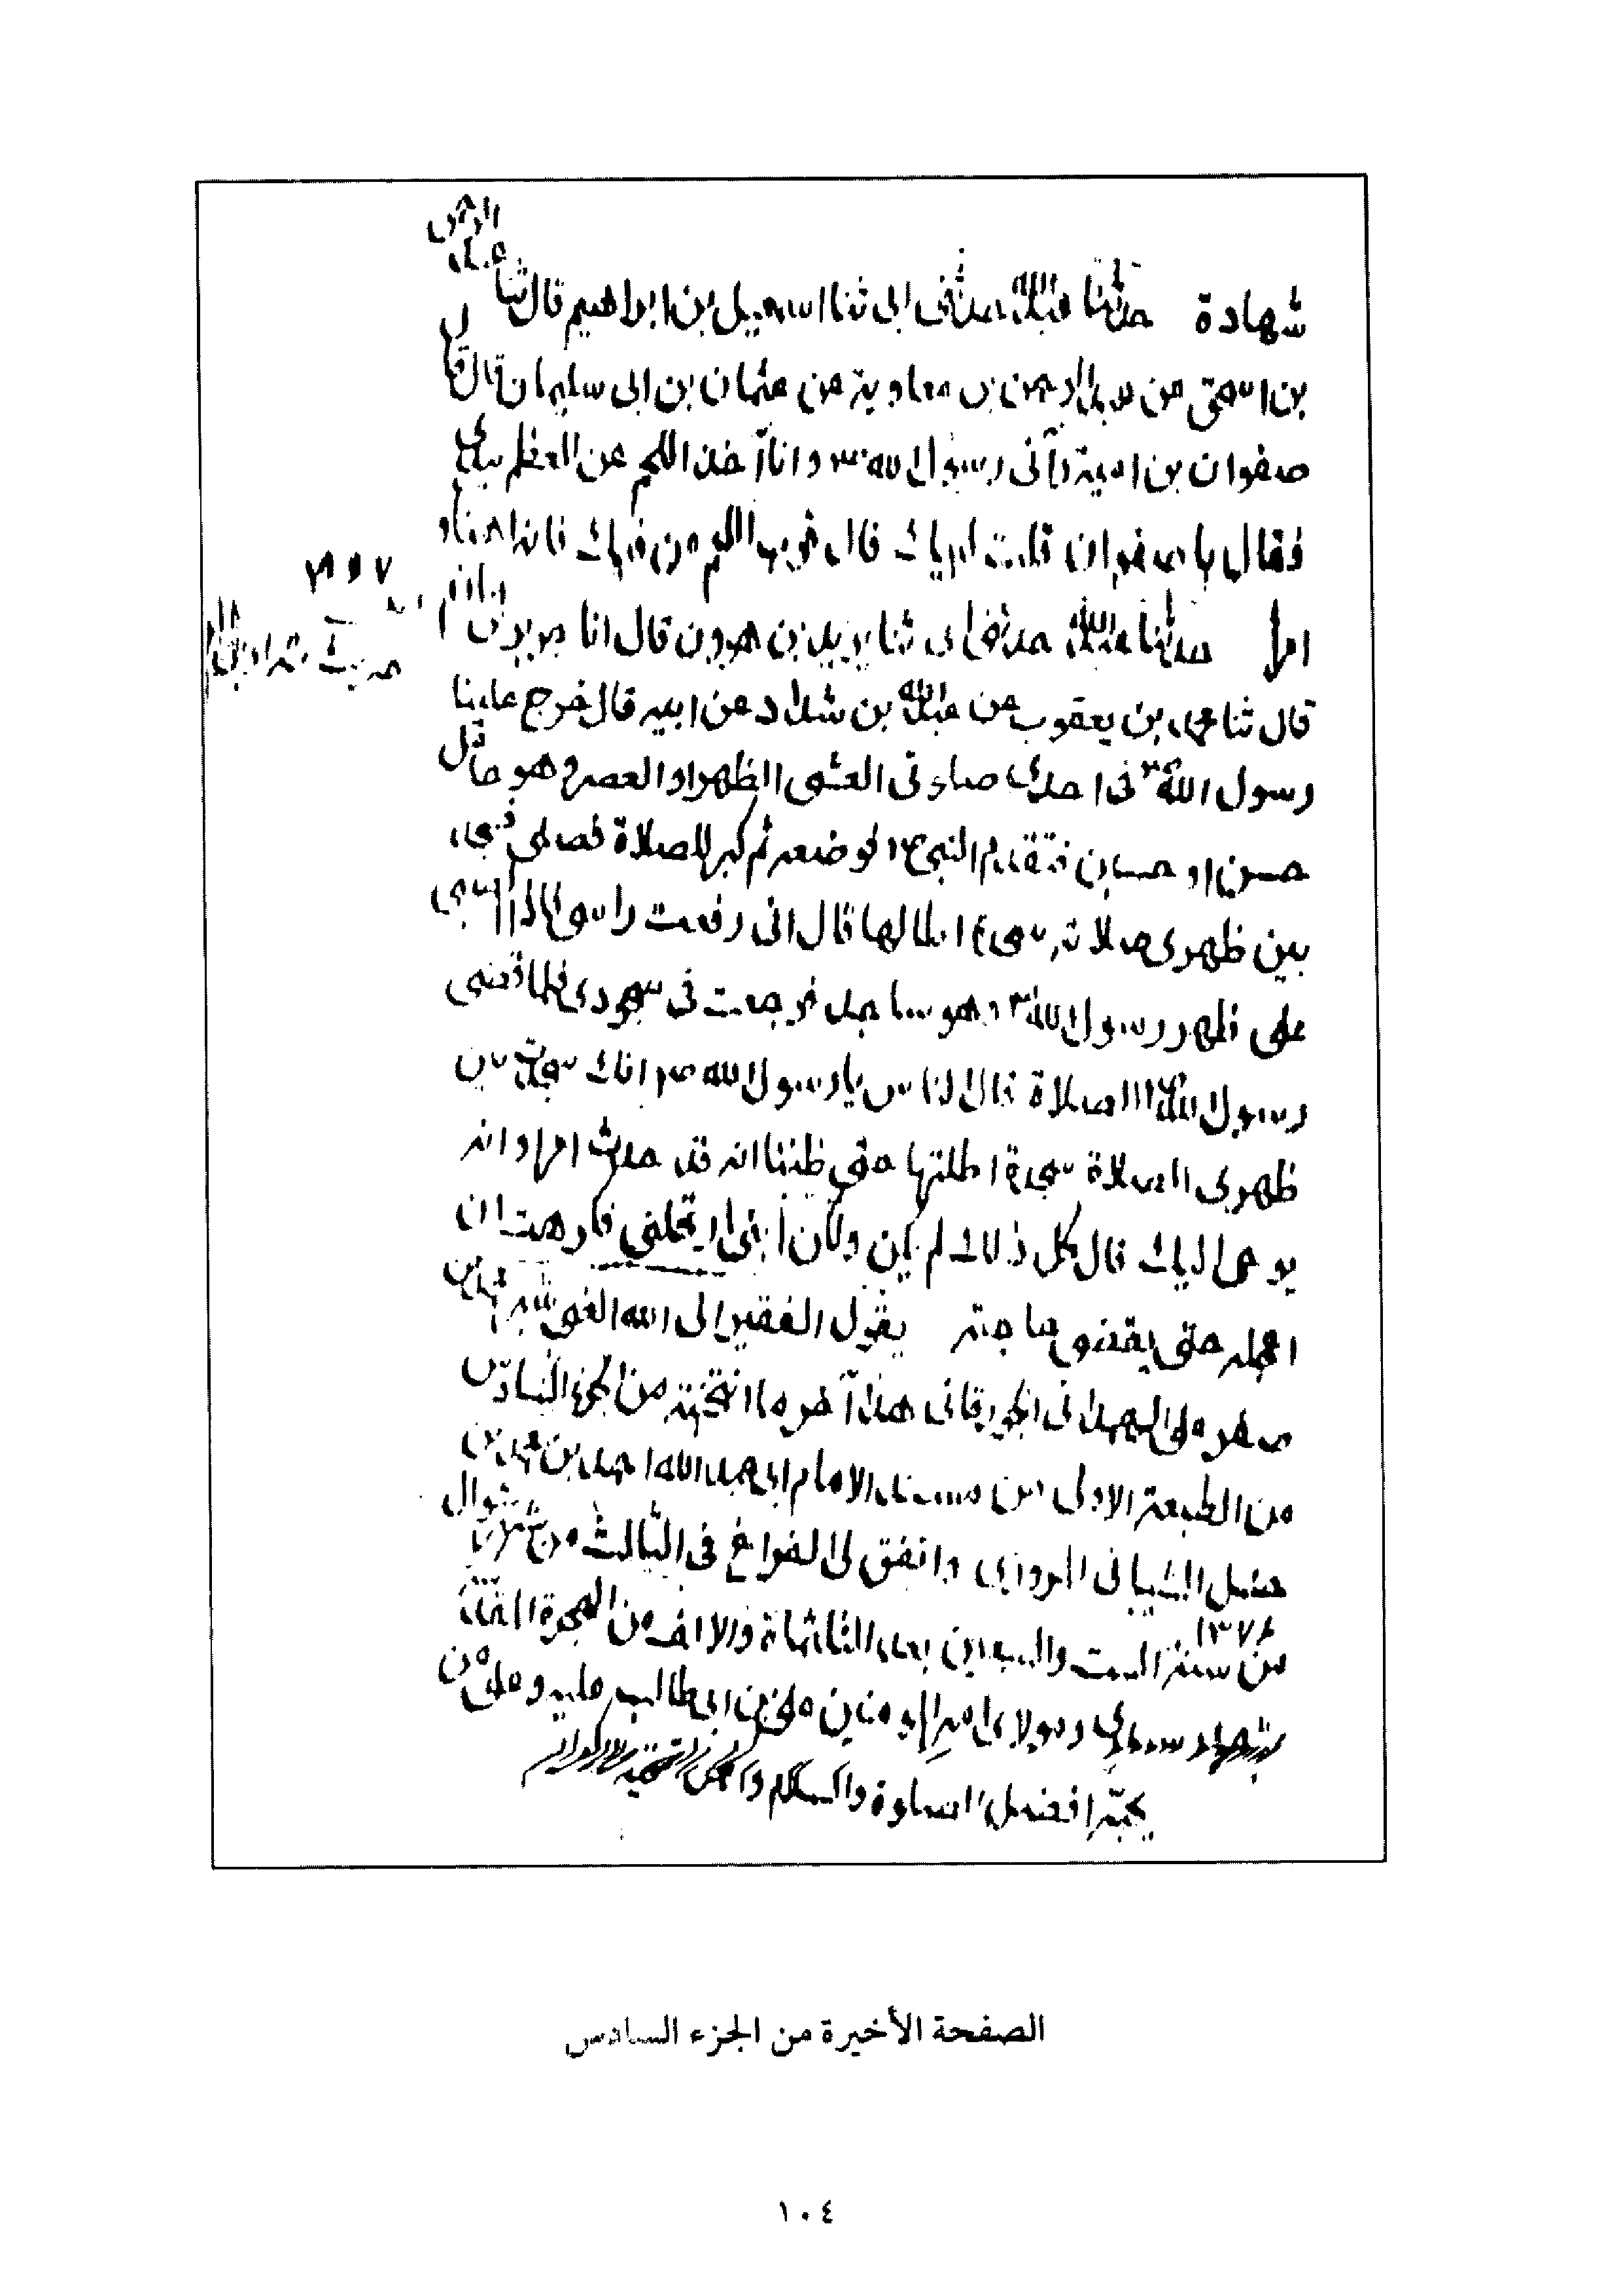 شهادة حدثنا عبدالله حدثنى ابى ثنا اسمعيل بن ابراهيم قال ثنا عبد الرحمن
بن اسحق عن عبد الرحمن بن معاوية عن عثمان بن ابى سليمان قال قال
صفوان بن امية رآنى رسول الله ص وانا آخذ اللحم عن العظم بيدى
فقال يا صفوان قلت لبيك قال قرب اللحم من فيك فانه اهنأ و
امرأ حدثنا عبدالله حدثنى ابى ثنا يزيد بن هرون قال انا جرير بن حازم
٤٩٧
حديث شداد بن الهاد
قال ثنا محمد بن يعقوب عن عبدالله بن شداد عن ابيه قال خرج علينا
رسول الله ص فى احدى صلاتى العشى الظهر او العصر وهو حامل
حسن او حسين فتقدم النبى ص فوضعه ثم كبر للصلاة فصلى فسجد
بين ظهرى صلاته سجدة اطالها قال انى رفعت راسى فاذا الصبى
على ظهر رسول الله ص وهو ساجد فرجعت فى سجودى فلما قضى
رسول الله الصلاة قال الناس يا رسول الله ص انك سجدت بين
ظهرى الصلاة سجدة اطلتها حتى ظننا انه قد حدث امر او انه
يوحى اليك قال كل ذلك لم يكن ولكن ابنى ارتحلنى فكرهت ان
اعجله حتى يقضى حاجته يقول الفقير الى الله الغنى
صفر على الهمدانى الجورقانى هذا آخر ما انتخبته من الجزء السادس
من الطبعة الاولى من مسند الامام ابى عبدالله احمد بن محمد بن
حنبل الشيبانى المروزى واتفق لى الفراغ فى الثالث من شهر شوال
من سنة الست والسبعين بعد الثلثمائة والالف من الهجرة ١٣٧٦
سيدى ومولاى امير المومنين على بن ابى طالب عليه وعلى من
يحبه افضل الصلوة والسلام
الصفحة الأخيرة من الجزء السادس
١٠٤